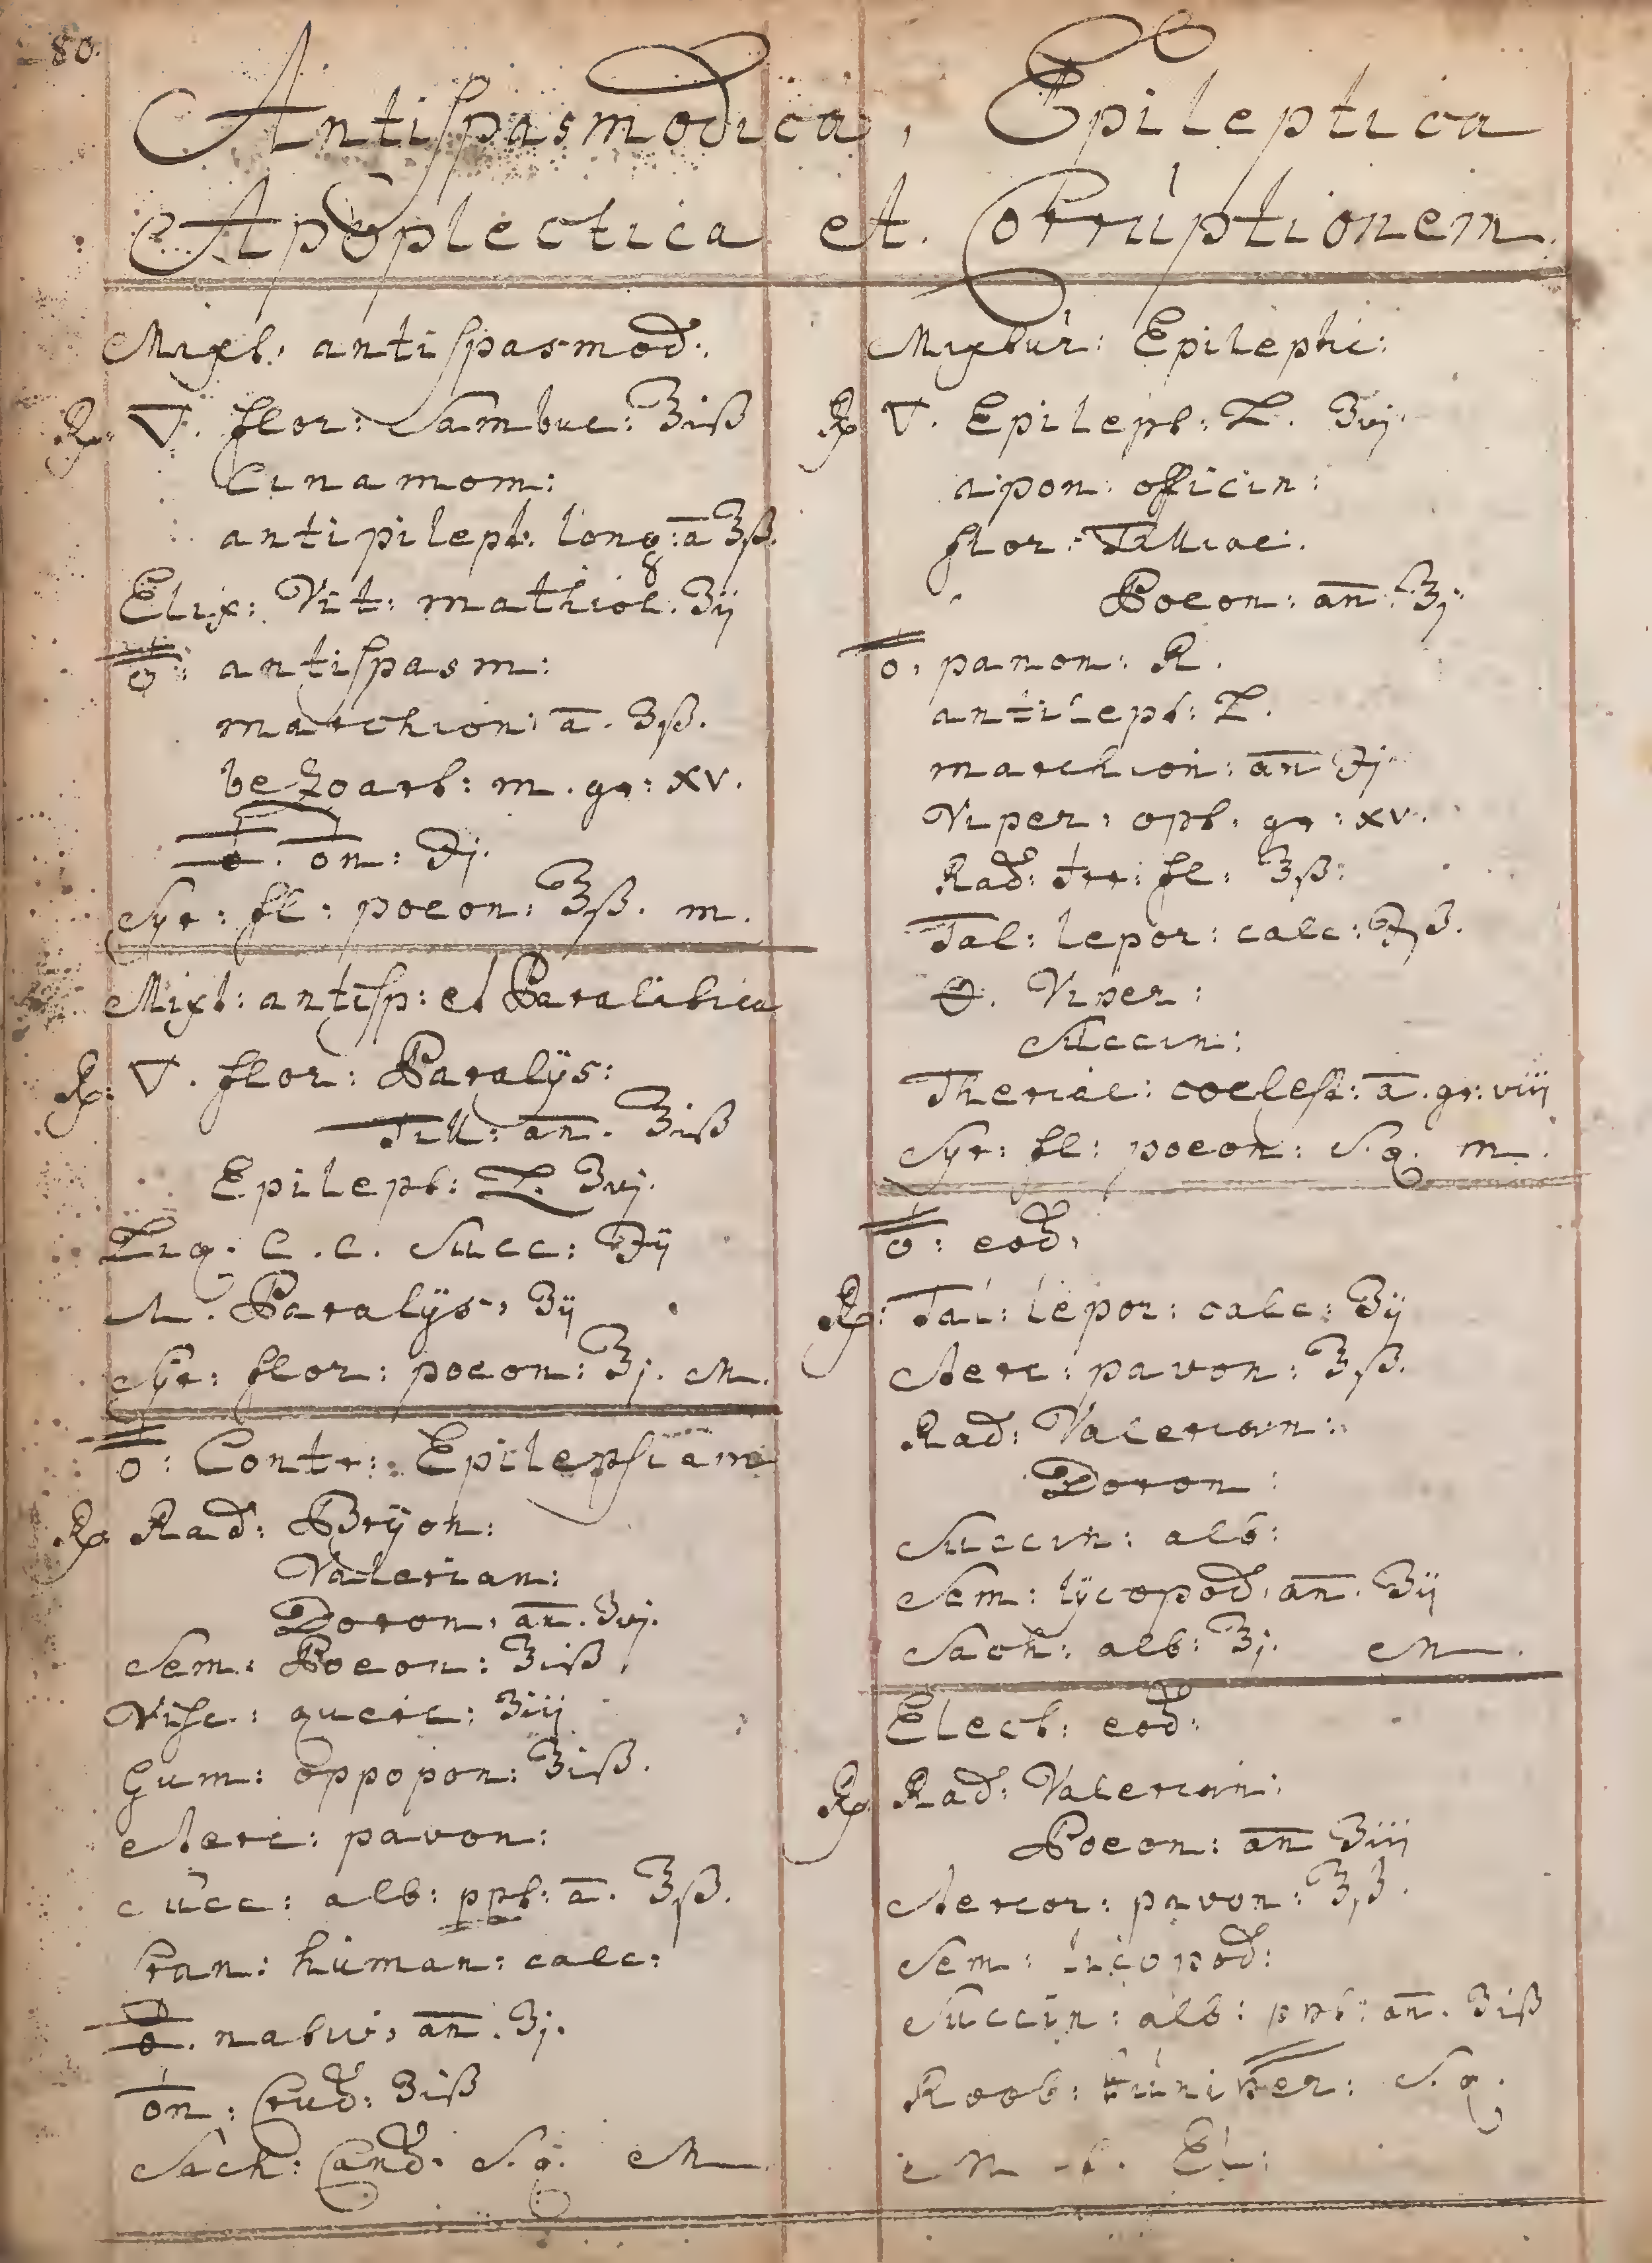 80.
Antispasmodica, Epileptica
Apoplectica et Corruptionem.
Mixt: antispasmod:
℞. 🜄. flor: Sambuc: ℥iß
Cinamom:
antipilept. long: a ℥ß.
Elix: Vit: mathiol. ʒij
antispasm:
marchion: a. ʒß.
bezoart: m. gr: xv.
℈j.
Syr: fl: poeon: ℥ß. m.
Mixt: antisp: et Paralitica
℞: 🜄. flor: Paralÿs:
Till: an. ℥iß
Epilept: L. ʒvj.
Liq. C. C. Succ: ℈ij
Paralÿs: ʒij
Syr: flor: poeon: ℥j. M.
Contr: Epilepsiam
℞. Rad: Brÿon:
Valerian:
Doron: an. ʒvj.
Sem: Poeon: ℥iß.
Visc: querc: ʒiij
Gum: oppopon: ℥iß.
Sterc: pavon:
Succ: alb: ppt: a. ℥ß.
Cran: human: calc:
nativ: an. ʒj.
Crud: ʒiß
Sach: Cand. S. q. M.
Mixtur: Epileptic:
℞ 🜄. Epilept: L. ʒvj.
apon: officin:
flor: Tilliae:
Poeon: an: ℥j.
panon: R.
antilept: L.
marchion: an ℈j.
Viper: opt. gr: xv.
Rad: Irr: fl: ℥ß:
Tal: lepor: calc: ℈ß.
Viper:
Succin:
Theriac: coelest: a. gr: viij
Syr: fl: poeon: S. q. m.
eod:
℞: Tal: lepor: calc: ʒij
Sterc: pavon: ℥ß.
Rad: Valerian:
Doron:
Succin: alb:
Sem: lÿcopod: an. ʒij
Sach: alb: ℥j. M.
Elect: eod:
℞. Rad: Valerian:
Poeon: an ʒiij
Stercor: pavon: ℥ß.
Sem: licopod:
Succin: alb: ppt: an. ʒiß
Roob: Juniper: S. q.
M f. El: